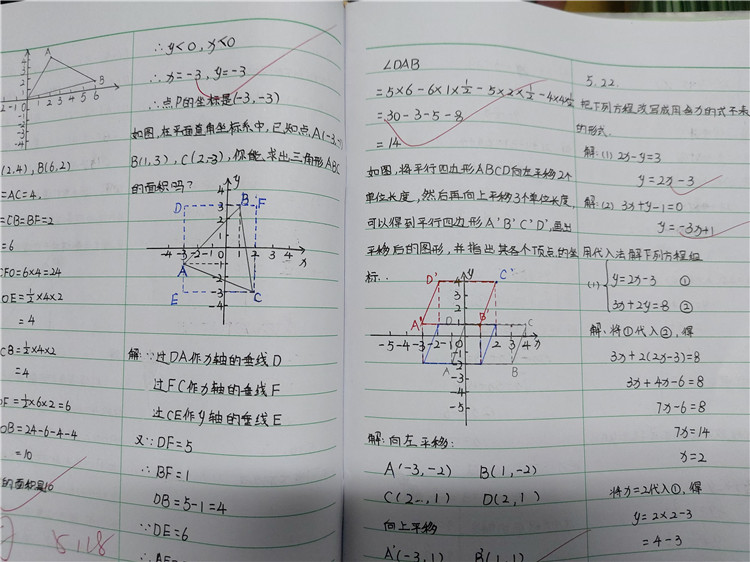 (2,4), B(6,2)
=AC=4,
=CB=BF=2
=6
CFO=6×4=24
OE=½×4×2
=4
CB=½×4×2
=4
OF=½×6×2=6
OB=24-6-4-4
=10
的面积是10
5,18
∴ y<0, x<0
∴ x=-3, y=-3
∴点P的坐标是(-3,-3)
如图,在平面直角坐标系中,已知点A(-3,
B(1,3), C(2,-3), 你能求出三角形ABC
的面积吗?
解: ∵过DA作y轴的垂线D
过FC作y轴的垂线F
过CE作y轴的垂线E
又∵DF=5
∴BF=1
DB=5-1=4
∵DE=6
∠OAB
=5×6-6×1×½-5×2×½-4×4½
=30-3-5-8
=14
如图,将平行四边形ABCD向左平移2个
单位长度,然后再向上平移3个单位长度,
可以得到平行四边形A'B'C'D',画出
平移后的图形,并指出其各个顶点的坐
标.
解:向左平移:
A'-3,-2) B(1,-2)
D(2,1)
向上平移
A'(-3,1) B'(1,1)
5.22.
把下列方程改写成用含x的式子表
的形式.
解:(1) 2x-y=3
y=2x-3
解:(2) 3x+y-1=0
y=-3x+1
用代入法解下列方程组
(1) y=2x-3 ①
3x+2y=8 ②
解:将①代入②,得
3x+2(2x-3)=8
3x+4x-6=8
7x-6=8
7x=14
x=2
将x=2代入①,得
y=2×2-3
=4-3